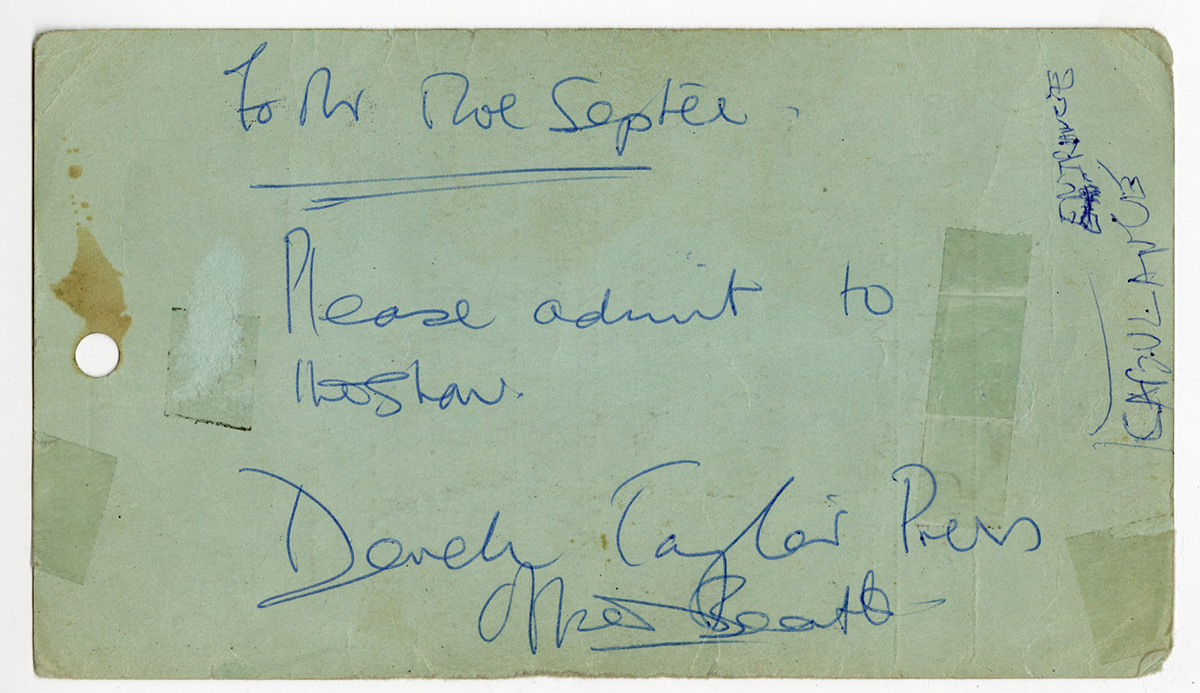 To Mr Moe Septee.
Please admit to
the show.
Derek Taylor Press
Officer Beatles
ENTRANCE